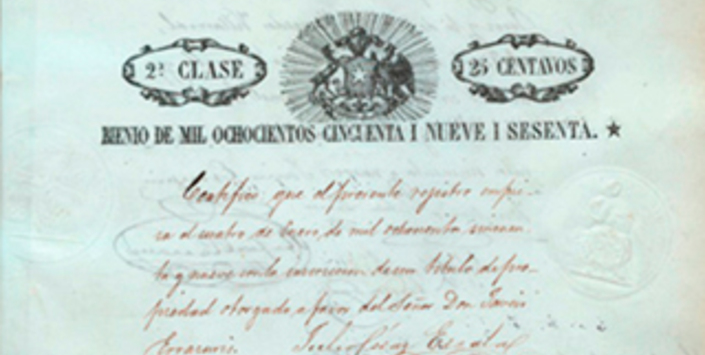 2ª CLASE
25 CENTAVOS
BIENIO DE MIL OCHOCIENTOS CINCUENTA I NUEVE I SESENTA.
Certifico que el presente registro empie-
za el cuatro de Enero, de mil ochocientos cincuen-
ta y nueve con la inscripcion de un título de pro-
piedad otorgado a favor del Señor Don
Julio César